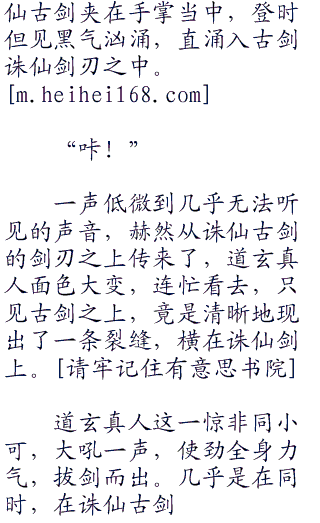 仙古剑夹在手掌当中，登时
但见黑气汹涌，直涌入古剑
诛仙剑刃之中。
[m.heihei168.com]
“咔！”
一声低微到几乎无法听
见的声音，赫然从诛仙古剑
的剑刃之上传来了，道玄真
人面色大变，连忙看去，只
见古剑之上，竟是清晰地现
出了一条裂缝，横在诛仙剑
上。[请牢记住有意思书院]
道玄真人这一惊非同小
可，大吼一声，使劲全身力
气，拔剑而出。几乎是在同
时，在诛仙古剑